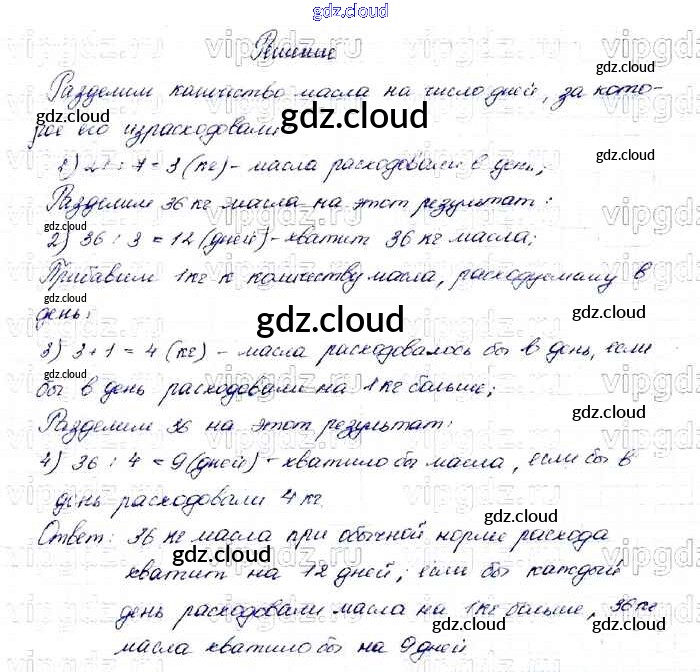 gdz.cloud
Решение
Разделим количество масла на число дней, за кото-
рое его израсходовали
1) 21 : 7 = 3 (кг) - масла расходовали в день;
Разделим 36 кг масла на этот результат:
2) 36 : 3 = 12 (дней) - хватит 36 кг масла;
Прибавим 1 кг к количеству масла, расходуемому в
день:
3) 3 + 1 = 4 (кг) - масла расходовалось бы в день, если
бы в день расходовали на 1 кг больше;
Разделим 36 на этот результат:
4) 36 : 4 = 9 (дней) - хватило бы масла, если бы в
день расходовали 4 кг.
Ответ: 36 кг масла при обычной норме расхода
хватит на 12 дней; если бы каждый
день расходовали масла на 1 кг больше, 36 кг
масла хватило бы на 9 дней